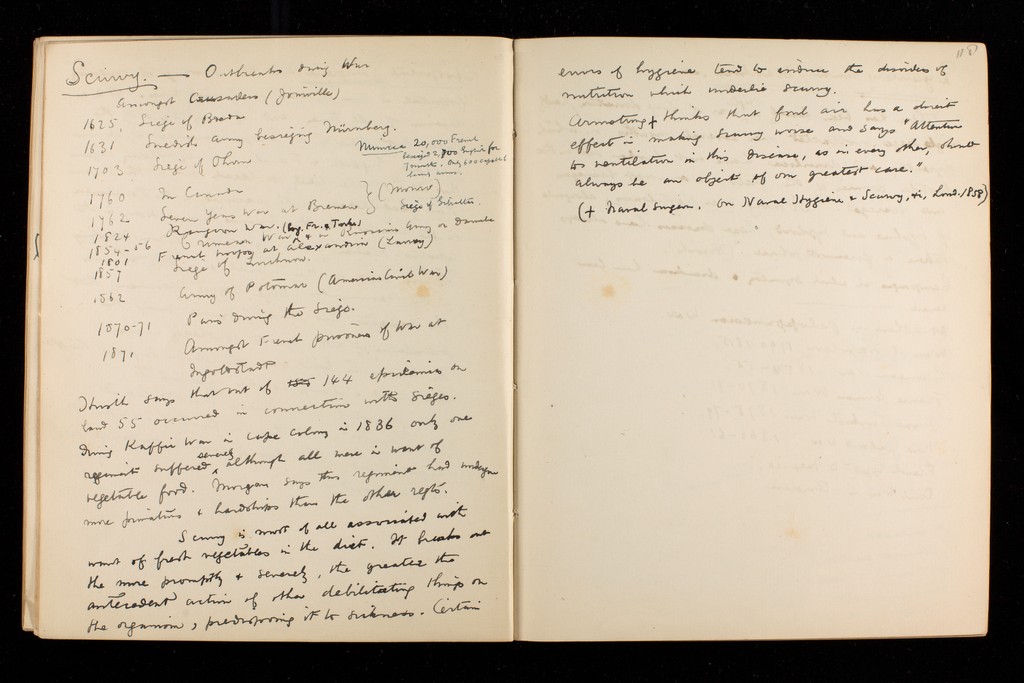 Scurvy. — Outbreaks during War
Amongst Crusaders (Joinville)
1625. Siege of Breda
1631 Swedish Army besieging Nürnberg.
1703 Siege of Thorn
20,000 French
1760 In Canada
1762 Seven Years War at Bremen } (Monro)
Siege of
1824 Rangoon War.
1854-56 Crimean War (Eng. Fr. & Turks) & in Army on Danube
1801 French troops at Alexandria (Larrey)
1857 Siege of Lucknow.
1862 Army of Potomac (American Civil War)
1870-71 Paris during the Siege.
1871 Amongst French prisoners of War at
Ingolstadt
Hirsch says that out of 144 epidemics on
land 55 occurred in connection with sieges.
During Kaffir War in Cape Colony in 1836 only one
regiment suffered severely, although all were in want of
vegetable food. Morgan says this regiment had undergone
more privations & hardships than the other regts.
Scurvy is most of all associated with
want of fresh vegetables in the diet. It breaks out
the more promptly & severely, the greater the
antecedent action of other debilitating things on
the organism, predisposing it to sickness. Certain
118
errors of hygiene tend to induce the disorders of
nutrition which underlie scurvy.
Armstrong + thinks that foul air has a direct
effect in making scurvy worse and says "Attention
to ventilation in this disease, as in every other, should
always be an object of our greatest care."
(+ Naval Surgeon. On Naval Hygiene & Scurvy, Lond. 1858)